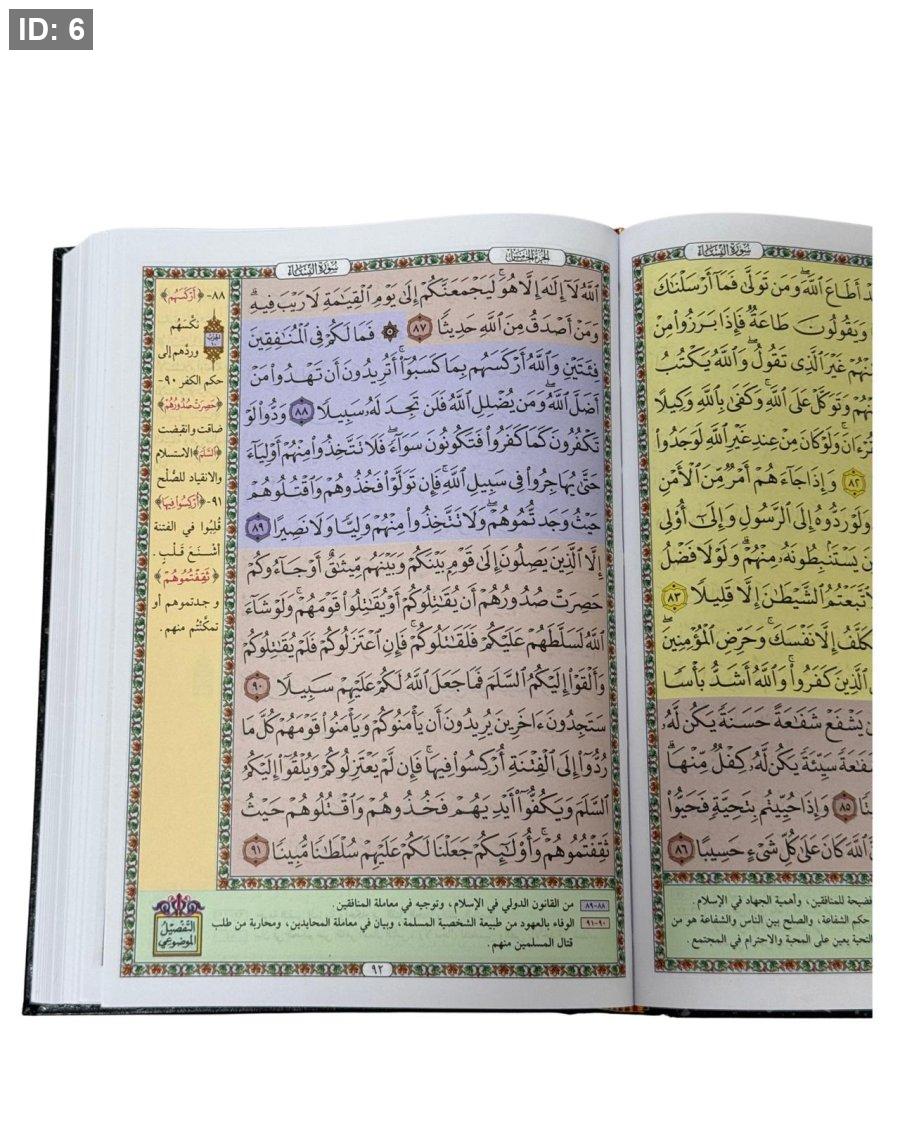 ID: 6
سُورَةُ النِّسَاءِ
أَطَاعَ ٱللَّهَ وَمَن تَوَلَّىٰ فَمَآ أَرْسَلْنَٰكَ
وَيَقُولُونَ طَاعَةٌ فَإِذَا بَرَزُوا۟ مِنْ
غَيْرَ ٱلَّذِى تَقُولُ وَٱللَّهُ يَكْتُبُ
وَتَوَكَّلْ عَلَى ٱللَّهِ وَكَفَىٰ بِٱللَّهِ وَكِيلًا
وَلَوْ كَانَ مِنْ عِندِ غَيْرِ ٱللَّهِ لَوَجَدُوا۟
٨٢ وَإِذَا جَآءَهُمْ أَمْرٌ مِّنَ ٱلْأَمْنِ
وَلَوْ رَدُّوهُ إِلَى ٱلرَّسُولِ وَإِلَىٰٓ أُو۟لِى
يَسْتَنۢبِطُونَهُۥ مِنْهُمْ وَلَوْلَا فَضْلُ
لَٱتَّبَعْتُمُ ٱلشَّيْطَٰنَ إِلَّا قَلِيلًا ٨٣
إِلَّا نَفْسَكَ وَحَرِّضِ ٱلْمُؤْمِنِينَ
ٱلَّذِينَ كَفَرُوا۟ وَٱللَّهُ أَشَدُّ بَأْسًا
يَشْفَعْ شَفَٰعَةً حَسَنَةً يَكُن لَّهُۥ
سَيِّئَةً يَكُن لَّهُۥ كِفْلٌ مِّنْهَا
٨٥ وَإِذَا حُيِّيتُم بِتَحِيَّةٍ فَحَيُّوا۟
ٱللَّهَ كَانَ عَلَىٰ كُلِّ شَىْءٍ حَسِيبًا ٨٦
فضيحة للمنافقين، وأهمية الجهاد في الإسلام.
حكم الشفاعة، والصلح بين الناس والشفاعة هو من
التحية يعين على المحبة والاحترام في المجتمع.
الجُزْءُ الخَامِسُ
سُورَةُ النِّسَاءِ
ٱللَّهُ لَآ إِلَٰهَ إِلَّا هُوَ لَيَجْمَعَنَّكُمْ إِلَىٰ يَوْمِ ٱلْقِيَٰمَةِ لَا رَيْبَ فِيهِ
وَمَنْ أَصْدَقُ مِنَ ٱللَّهِ حَدِيثًا ٨٧ ۞ فَمَا لَكُمْ فِى ٱلْمُنَٰفِقِينَ
فِئَتَيْنِ وَٱللَّهُ أَرْكَسَهُم بِمَا كَسَبُوٓا۟ أَتُرِيدُونَ أَن تَهْدُوا۟ مَنْ
أَضَلَّ ٱللَّهُ وَمَن يُضْلِلِ ٱللَّهُ فَلَن تَجِدَ لَهُۥ سَبِيلًا ٨٨ وَدُّوا۟ لَوْ
تَكْفُرُونَ كَمَا كَفَرُوا۟ فَتَكُونُونَ سَوَآءً فَلَا تَتَّخِذُوا۟ مِنْهُمْ أَوْلِيَآءَ
حَتَّىٰ يُهَاجِرُوا۟ فِى سَبِيلِ ٱللَّهِ فَإِن تَوَلَّوْا۟ فَخُذُوهُمْ وَٱقْتُلُوهُمْ
حَيْثُ وَجَدتُّمُوهُمْ وَلَا تَتَّخِذُوا۟ مِنْهُمْ وَلِيًّا وَلَا نَصِيرًا ٨٩
إِلَّا ٱلَّذِينَ يَصِلُونَ إِلَىٰ قَوْمٍۭ بَيْنَكُمْ وَبَيْنَهُم مِّيثَٰقٌ أَوْ جَآءُوكُمْ
حَصِرَتْ صُدُورُهُمْ أَن يُقَٰتِلُوكُمْ أَوْ يُقَٰتِلُوا۟ قَوْمَهُمْ وَلَوْ شَآءَ
ٱللَّهُ لَسَلَّطَهُمْ عَلَيْكُمْ فَلَقَٰتَلُوكُمْ فَإِنِ ٱعْتَزَلُوكُمْ فَلَمْ يُقَٰتِلُوكُمْ
وَأَلْقَوْا۟ إِلَيْكُمُ ٱلسَّلَمَ فَمَا جَعَلَ ٱللَّهُ لَكُمْ عَلَيْهِمْ سَبِيلًا ٩٠
سَتَجِدُونَ ءَاخَرِينَ يُرِيدُونَ أَن يَأْمَنُوكُمْ وَيَأْمَنُوا۟ قَوْمَهُمْ كُلَّ مَا
رُدُّوٓا۟ إِلَى ٱلْفِتْنَةِ أُرْكِسُوا۟ فِيهَا فَإِن لَّمْ يَعْتَزِلُوكُمْ وَيُلْقُوٓا۟ إِلَيْكُمُ
ٱلسَّلَمَ وَيَكُفُّوٓا۟ أَيْدِيَهُمْ فَخُذُوهُمْ وَٱقْتُلُوهُمْ حَيْثُ
ثَقِفْتُمُوهُمْ وَأُو۟لَٰٓئِكُمْ جَعَلْنَا لَكُمْ عَلَيْهِمْ سُلْطَٰنًا مُّبِينًا ٩١
٨٨- ﴿أَرْكَسَهُم﴾
نَكَسَهُم
وردَّهم إلى
حكم الكفر ٩٠-
﴿حَصِرَتْ صُدُورُهُمْ﴾
ضاقت وانقبضت
﴿السَّلَمَ﴾ الاستسلام
والانقياد للصُّلح
٩١- ﴿أُرْكِسُوا فِيهَا﴾
قُلِبُوا في الفتنة
أشْنَعَ قَلْبٍ.
﴿ثَقِفْتُمُوهُمْ﴾
وجدتموهم أو
تمكَّنْتُم منهم.
التفصيل الموضوعي
٨٨-٨٩ من القانون الدولي في الإسلام، وتوجيه في معاملة المنافقين.
٩٠-٩١ الوفاء بالعهود من طبيعة الشخصية المسلمة، وبيان في معاملة المحايدين، ومحاربة من طلب
قتال المسلمين منهم.
٩٢